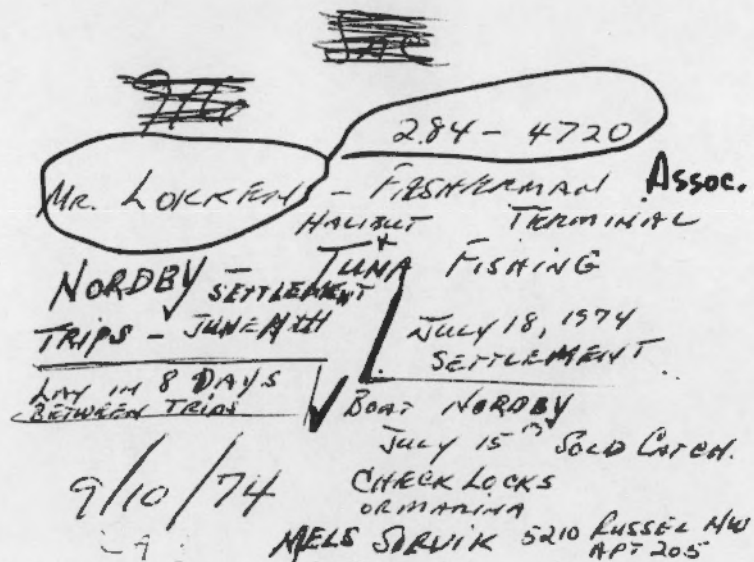 284-4720
MR. LOKKEN - FISHERMAN Assoc.
HALIBUT TERMINAL
& TUNA FISHING
NORDBY SETTLEMENT
TRIPS - JUNE
JULY 18, 1974
SETTLEMENT
LAY IN 8 DAYS
BETWEEN TRIPS
BOAT NORDBY
JULY 15TH SOLD CATCH.
9/10/74
CHECK LOCKS
OR MARINA
NELS SORVIK 5210 RUSSEL NW
APT 205